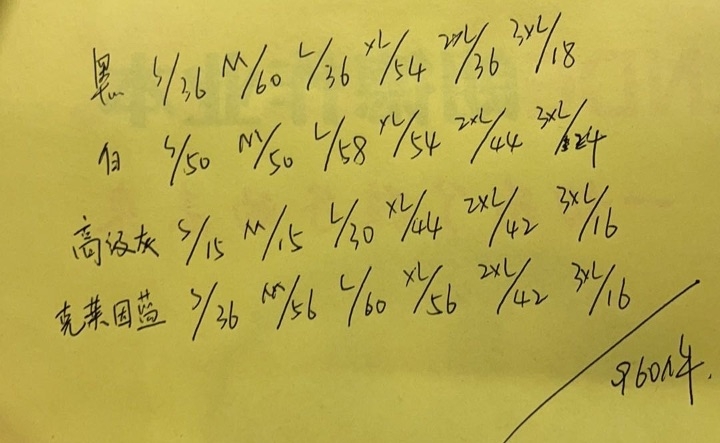 黑 S/36 M/60 L/36 XL/54 2XL/36 3XL/18
白 S/50 M/50 L/58 XL/54 2XL/44 3XL/24
高级灰 S/15 M/15 L/30 XL/44 2XL/42 3XL/16
克莱因蓝 S/36 M/56 L/60 XL/56 2XL/42 3XL/16
960件.